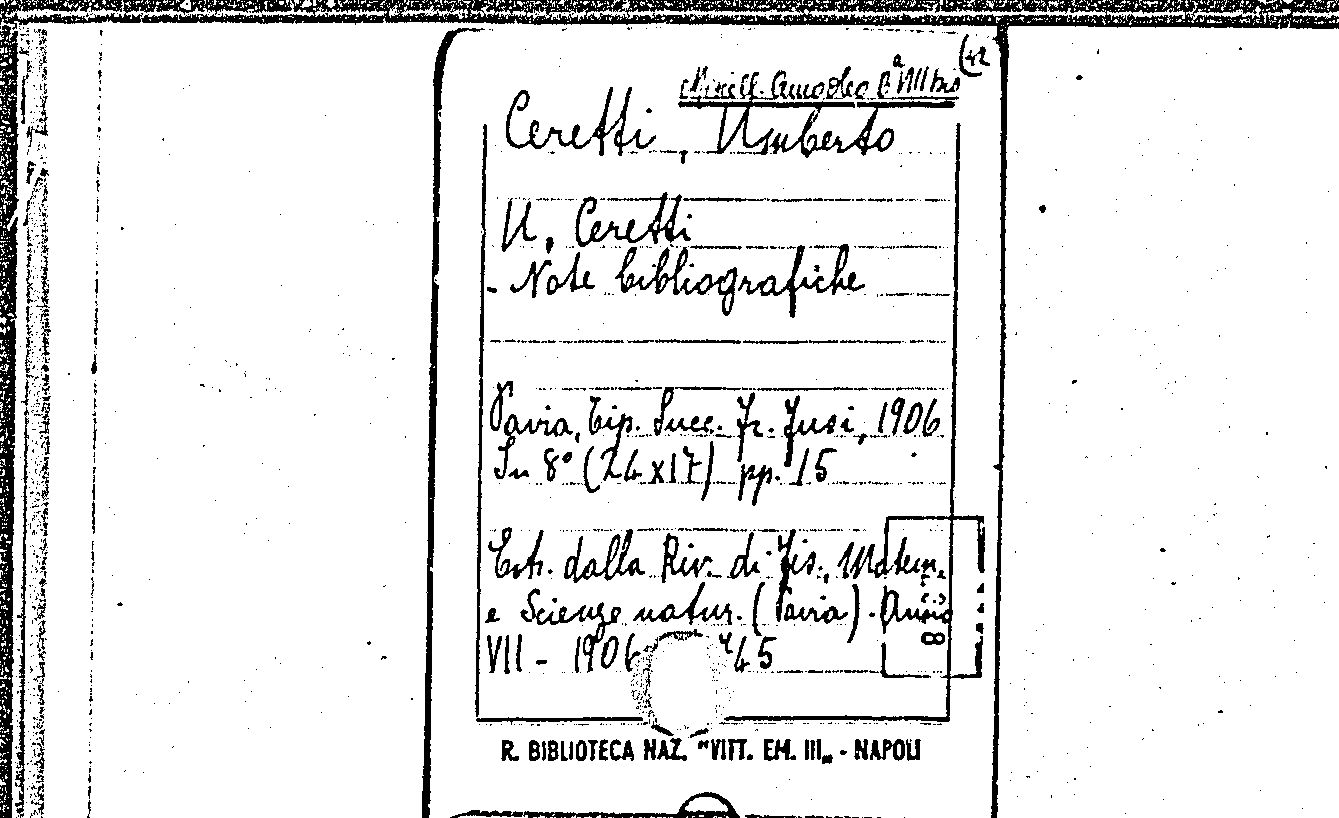 (42
Miscell. Amodeo Bª VIII bis
Ceretti, Umberto
U. Ceretti
- Note bibliografiche
Pavia, Tip. Succ. Fr. Fusi, 1906
In 8° (24x17) pp. 15
Estr. dalla Riv. di Fis., Matem.
e Scienze natur. (Pavia). Anno
VII - 1906 45
R. BIBLIOTECA NAZ. "VITT. EM. III„ - NAPOLI